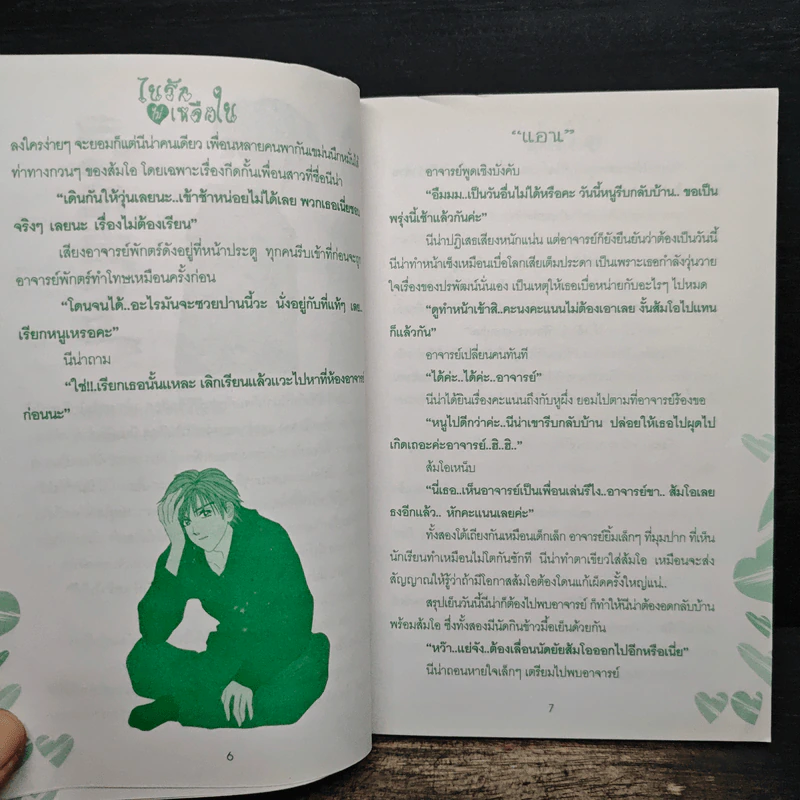 ไนรัก
ที่เหลือใน
ลงใครง่ายๆ จะยอมก็แต่นีน่าคนเดียว เพื่อนหลายคนพากันเขม่นนึกหมั่นไส้
ท่าทางกวนๆ ของส้มโอ โดยเฉพาะเรื่องกีดกั้นเพื่อนสาวที่ชื่อนีน่า
“เดินกันให้วุ่นเลยนะ..เข้าช้าหน่อยไม่ได้เลย พวกเธอเนี่ยซน
จริงๆ เลยนะ เรื่องไม่ต้องเรียน”
เสียงอาจารย์พักตร์ดังอยู่ที่หน้าประตู ทุกคนรีบเข้าที่ก่อนจะถูก
อาจารย์พักตร์ทำโทษเหมือนครั้งก่อน
“โดนจนได้..อะไรมันจะซวยปานนี้วะ นั่งอยู่กับที่แท้ๆ เลย..
เรียกหนูเหรอคะ”
นีน่าถาม
“ใช่!!.เรียกเธอนั้นแหละ เลิกเรียนแล้วแวะไปหาที่ห้องอาจารย์
ก่อนนะ”
6
“แอน”
อาจารย์พูดเชิงบังคับ
“อืมมม..เป็นวันอื่นไม่ได้หรือคะ วันนี้หนูรีบกลับบ้าน.. ขอเป็น
พรุ่งนี้เช้าแล้วกันค่ะ”
นีน่าปฏิเสธเสียงหนักแน่น แต่อาจารย์ก็ยังยืนยันว่าต้องเป็นวันนี้
นีน่าทำหน้าเซ็งเหมือนเบื่อโลกเสียเต็มประดา เป็นเพราะเธอกำลังวุ่นวาย
ใจเรื่องของปรพัฒน์นั่นเอง เป็นเหตุให้เธอเบื่อหน่ายกับอะไรๆ ไปหมด
“ดูทำหน้าเข้าสิ..คะนงคะแนนไม่ต้องเอาเลย งั้นส้มโอไปแทน
ก็แล้วกัน”
อาจารย์เปลี่ยนคนทันที
“ได้ค่ะ..ได้ค่ะ..อาจารย์”
นีน่าได้ยินเรื่องคะแนนถึงกับหูผึ่ง ยอมไปตามที่อาจารย์ร้องขอ
“หนูไปดีกว่าค่ะ..นีน่าเขารีบกลับบ้าน ปล่อยให้เธอไปผุดไป
เกิดเถอะค่ะอาจารย์..ฮิ..ฮิ..”
ส้มโอเหน็บ
“นี่เธอ..เห็นอาจารย์เป็นเพื่อนเล่นรึไง..อาจารย์ขา.. ส้มโอเลย
ธงอีกแล้ว.. หักคะแนนเลยค่ะ”
ทั้งสองโต้เถียงกันเหมือนเด็กเล็ก อาจารย์ยิ้มเล็กๆ ที่มุมปาก ที่เห็น
นักเรียนทำเหมือนไม่โตกันซักที นีน่าทำตาเขียวใส่ส้มโอ เหมือนจะส่ง
สัญญาณให้รู้ว่าถ้ามีโอกาสส้มโอต้องโดนแก้เผ็ดครั้งใหญ่แน่..
สรุปเย็นวันนี้นีน่าก็ต้องไปพบอาจารย์ ก็ทำให้นีน่าต้องอดกลับบ้าน
พร้อมส้มโอ ซึ่งทั้งสองมีนัดกินข้าวมื้อเย็นด้วยกัน
“หว๊า..แย่จัง..ต้องเลื่อนนัดยัยส้มโอออกไปอีกหรือเนี่ย”
นีน่าถอนหายใจเล็กๆ เตรียมไปพบอาจารย์
7